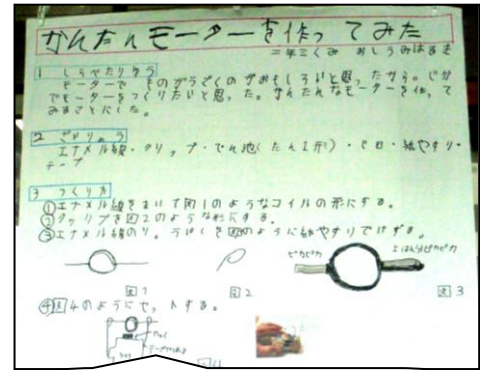 かんたんモーターを作ってみた
二年三くみ おしうみはるき
1 しらべたりゆう
モーターで ものがうごくのがおもしろいと思ったから。じぶん
でモーターをつくりたいと思った。かんたんなモーターを作って
みることにした。
2 ざいりょう
エナメル線・クリップ・でん池(たん1形)・じ石・紙やすり・
テープ
3 つくり方
①エナメル線をまいて図1のようなコイルの形にする。
②クリップを図2のような形にする。
③エナメル線のりょうはしを図のように紙やすりでけずる。
ピカピカ
上はんぶんピカピカ
図1
図2
図3
④図4のようにセットする。